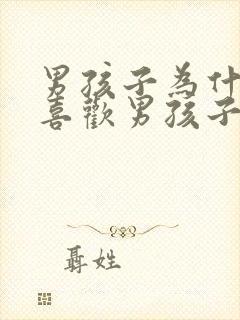 男孩子為什
喜歡男孩子
聶姓